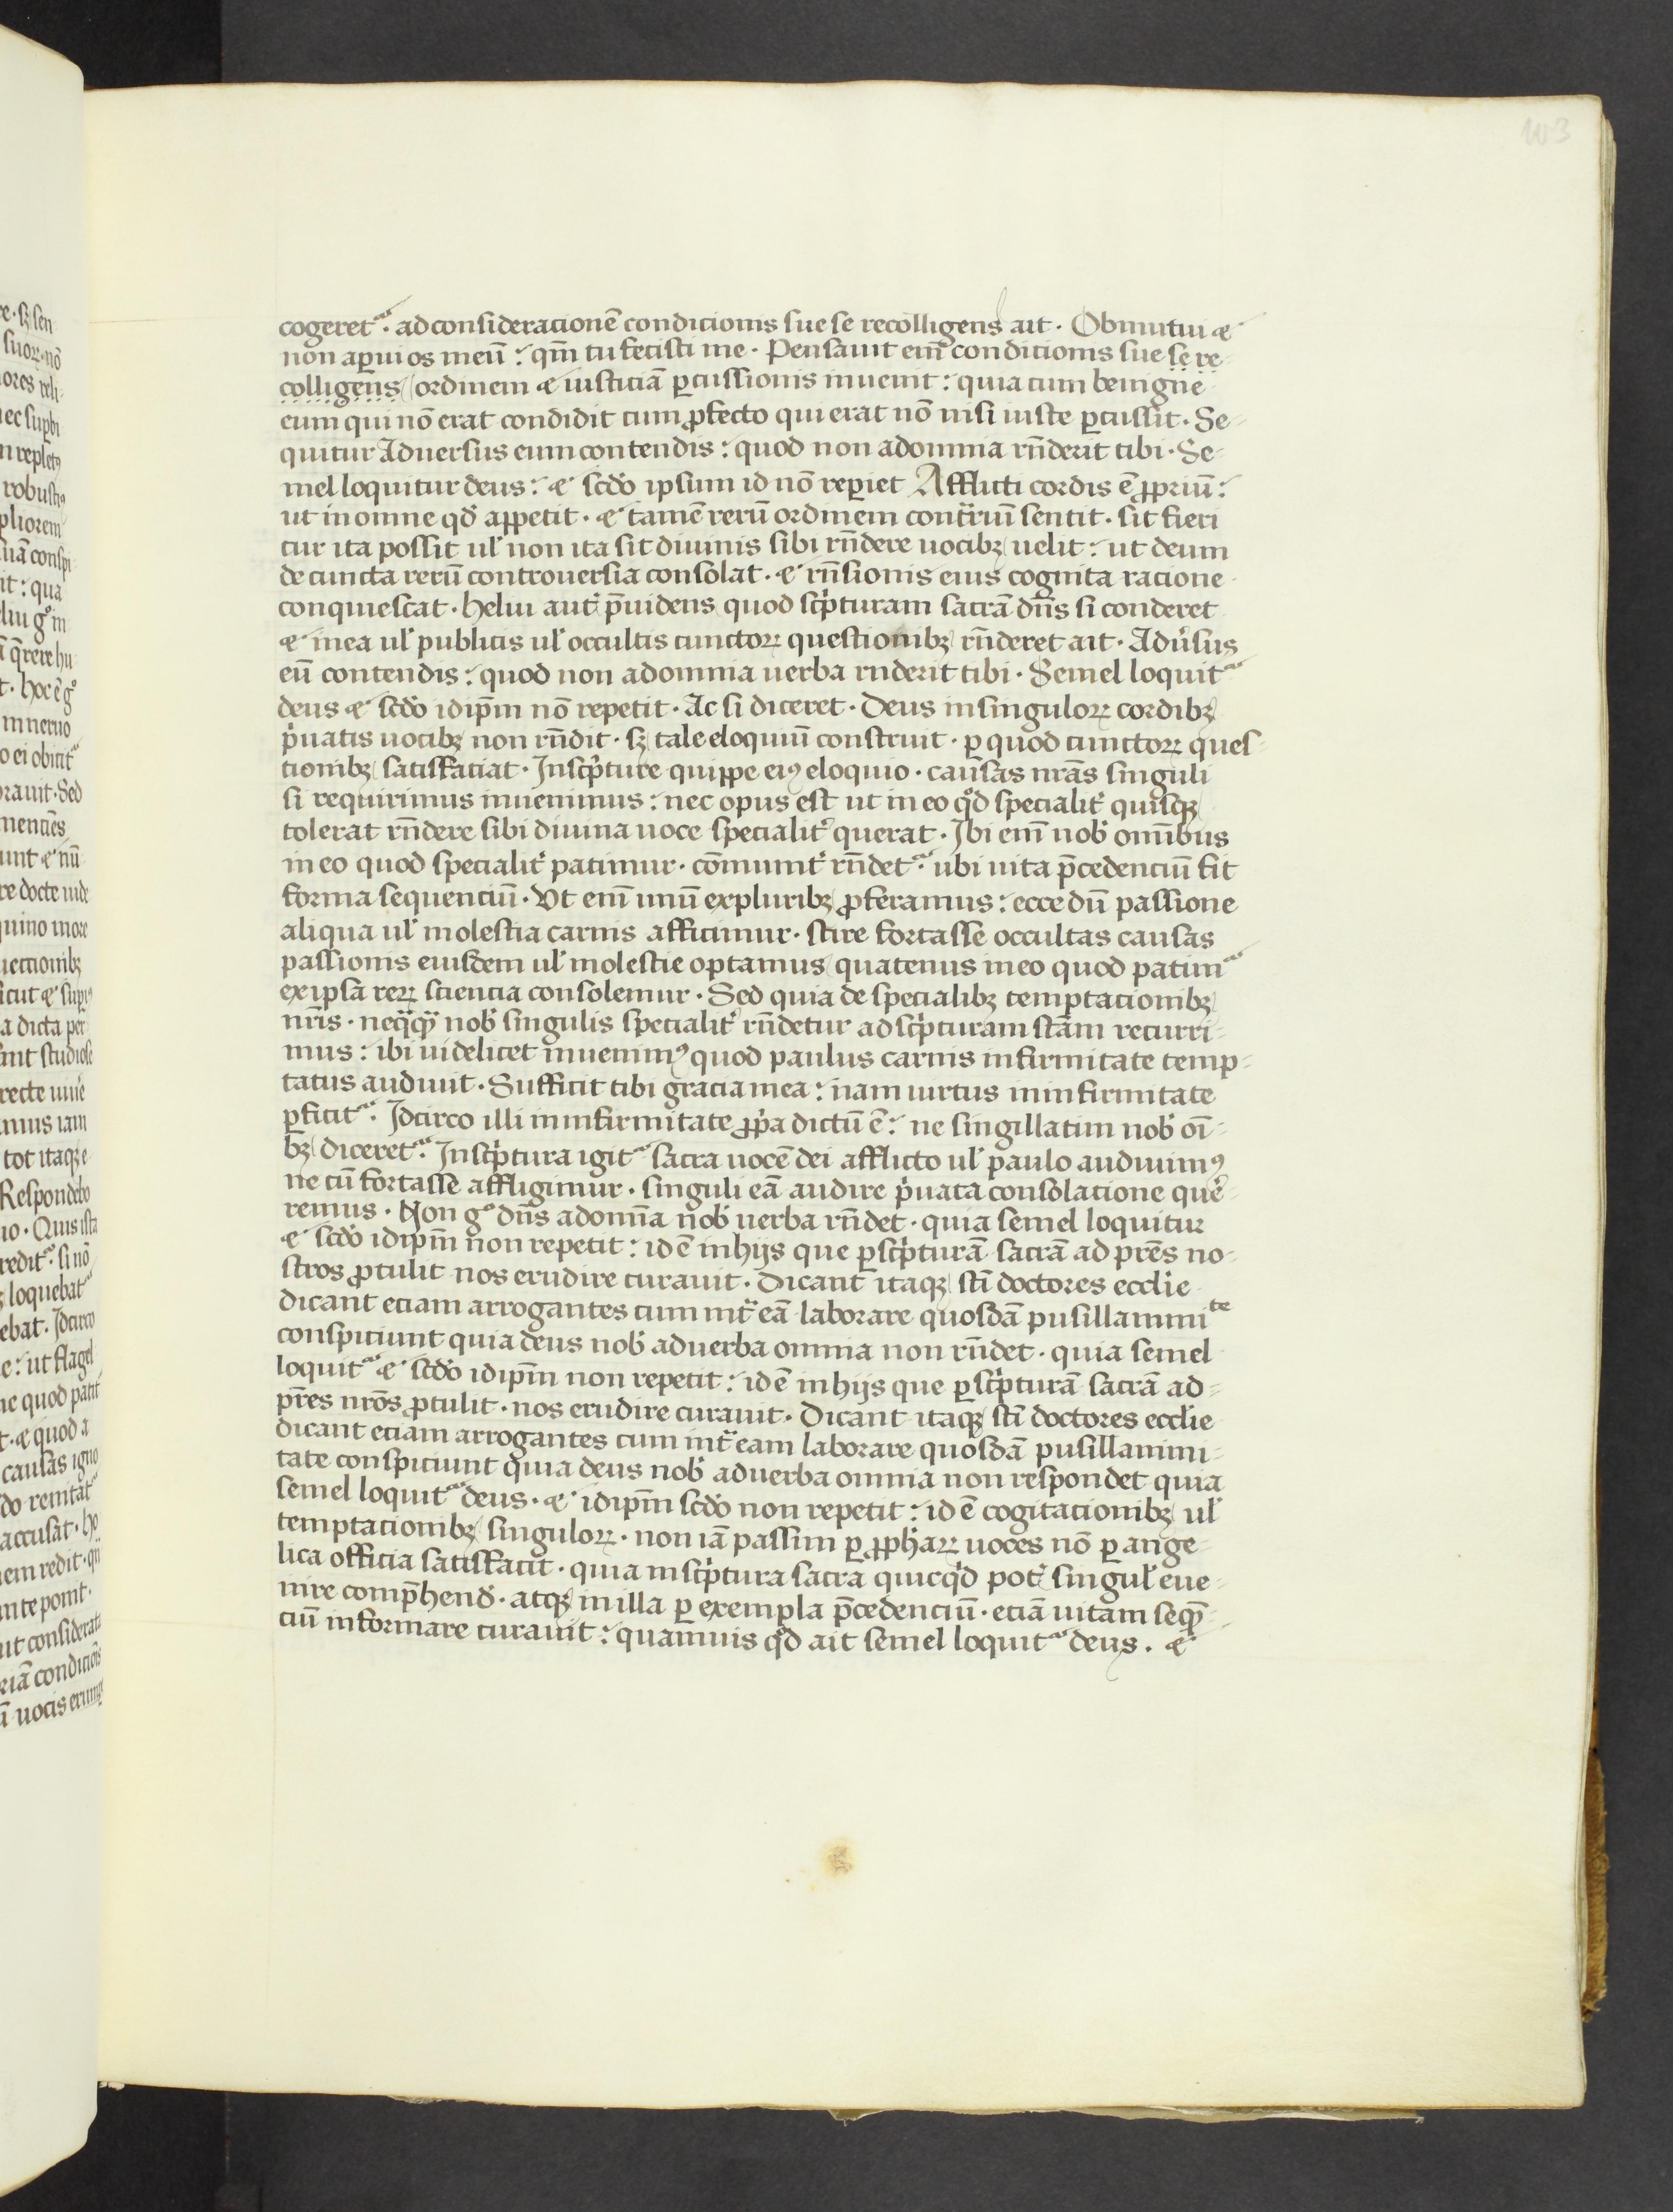 103
cogeret᷑. ad consideracionē condicionis sue se recolligens ait · Obmutui ⁊
non aꝑui os meū : qm̄ tu fecisti me · Pensauit em̄ condicionis sue se re-
colligens ordinem ⁊ iusticiā ꝑcussionis inuenit : quia cum benigne
eum qui nō erat condidit cum ꝓfecto qui erat nō nisi iuste ꝑcussit · Se-
quitur Aduersus eum contendis : quod non ad omnia rn̄derit tibi · Se-
mel loquitur deus : ⁊ scd̓o ipsum id nō reꝑiet Afflicti cordis ē ꝓpriū :
ut in omne qd̓ appetit · ⁊ tamē rerū ordinem contᷓriū sentit · sit fieri
cur ita possit ul̓ non ita sit diuinis sibi rn̄dere uocibꝫ uelit : ut deum
de cuncta rerū controuersia consolat · ⁊ rn̄sionis eius cognita racione
conquiescat · heliu aut̓ p̄uidens quod scͥpturam sacrā dn̄s si conderet
⁊ in ea ul̓ publicis ul̓ occultis cunctoꝝ questionibꝫ rn̄deret ait · Adu̓sus
eū contendis : quod non ad omnia uerba rnderit tibi · Semel loquit᷑
deus ⁊ scd̓o idip̄m nō repetit · Ac si diceret · Deus in singuloꝝ cordibꝫ
pͥuatis uocibꝫ non rn̄dit · sꝫ tale eloquiū construit · ꝑ quod cunctoꝝ ques-
tionibꝫ satisfaciat · In scͥpture quippe eiꝰ eloquio · causas nr̄as singuli
si requirimus inuenimus : nec opus est ut in eo qͦd specialit̓ quisqꝫ
tolerat rn̄dere sibi diuina uoce specialit̓ querat · Ibi em̄ nob̓ omībus
in eo quod specialit̓ patimur · cōmunit̓ rn̄det᷑ · ubi uita p̄cedenciū fit
forma sequenciū · Vt em̄ unū ex pluribꝫ ꝓferamus : ecce dū passione
aliqua ul̓ molestia carnis afficimur · scire fortasse occultas causas
passionis eiusdem ul̓ molestie optamus quatenus in eo quod patim᷑
ex ipsa reꝝ sciencia consolemur · Sed quia de specialibꝫ temptacionibꝫ
nr̄is · neqᷓqᷓ nob̓ singulis specialit̓ rn̄detur ad scͥpturam sc̄am recurri-
mus : ibi uidelicet inuenimꝰ quod paulus carnis infirmitate temp-
tatus audiuit · Sufficit tibi gracia mea : nam uirtus in infirmitate
ꝑficit᷑ : Idcirco illi in infirmitate ꝓpͥa dictū ē : ne singillatim nob̓ oī-
bꝫ diceret᷑ : In scͥptura igit᷑ sacra uocē dei afflicto ul̓ paulo audiuimꝰ
ne cū fortasse affligimur · singuli eā audire pͥuata consolacione que-
remus · Non gͦ dn̄s ad om̄a nob̓ uerba rn̄det · quia semel loquitur
⁊ scd̓o idip̄m non repetit : id ē in hijs que ꝑ scͥpturā sacrā ad pr̄es no-
stros ꝓtulit nos erudire curauit · Dicant itaqꝫ sc̄i doctores eccl̓ie
dicant eciam arrogantes cum int̓ eā laborare quosdā pusillanimiᵗᵉ
conspiciunt quia deus nob̓ ad uerba omnia non rn̄det · quia semel
loquit᷑ ⁊ scd̓o idip̄m non repetit : id ē in hijs que ꝑ scͥpturā sacrā ad-
pr̄es nr̄os ꝓtulit · nos erudire curauit · Dicant itaqꝫ sc̄i doctores eccl̓ie
dicant eciam arrogantes cum int̓ eam laborare quosdā pusillanimi-
tate conspiciunt quia deus nob̓ ad uerba omnia non respondet quia
semel loquit᷑ deus · ⁊ idip̄m scd̓o non repetit : id ē cogitacionibꝫ ul̓
temptacionibꝫ singuloꝝ · non iā passim ꝑ ꝓph̓aꝝ uoces nō ꝑ ange-
lica officia satisfacit · quia in scͥptura sacra quicqͥd pot̓ singul̓ eue-
nire comp̄hend̓ · atqꝫ in illa ꝑ exempla p̄cedenciū · eciā uitam seqᷓ-
ciū informare curauit : quamuis qͦd ait semel loquit᷑ deus · ⁊